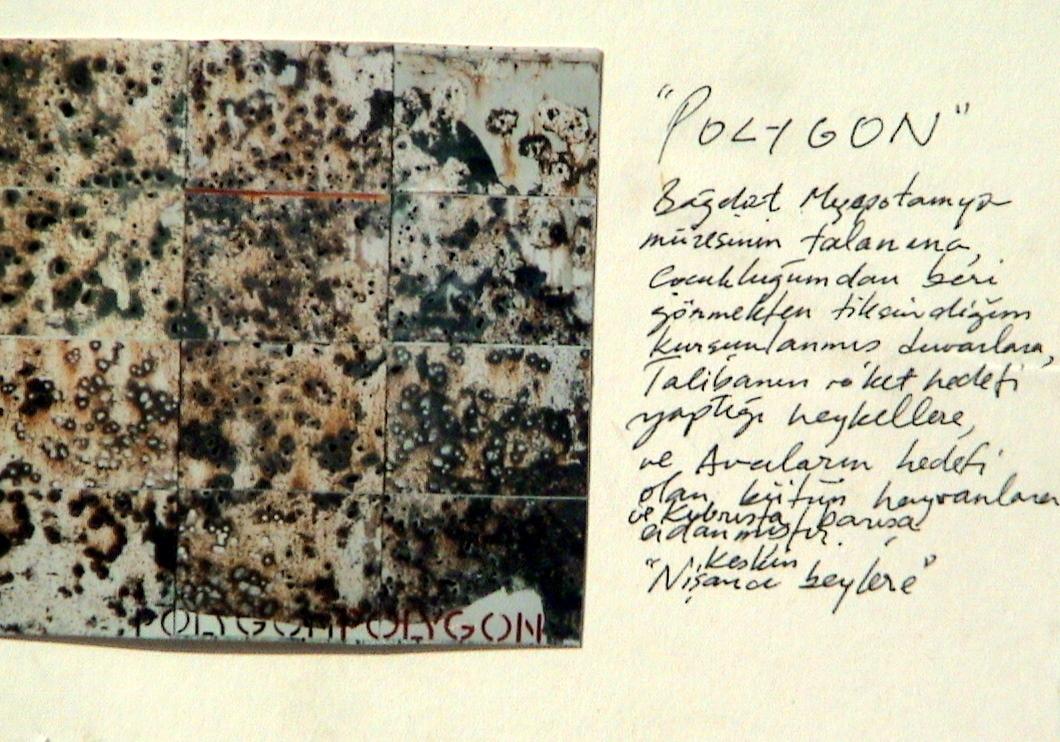 POLYGON POLYGON
"POLYGON"
Bağdat Mezopotamya
müzesinin talanına,
Çocukluğumdan beri
görmekten tiksindiğim
kurşunlanmış duvarlara,
Talibanın roket hedefi
yaptığı heykellere,
ve Avcıların hedefi
olan bütün hayvanlara
ve Kıbrısta barışa
adanmıştır.
keskin
"Nişancı beylere"